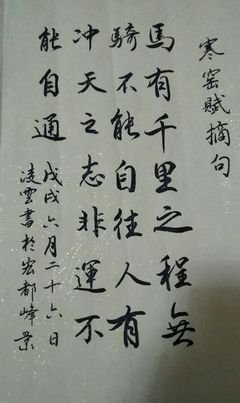 寒窑赋摘句
馬有千里之程無
騎不能自往人有
冲天之志非運不
能自通
戊戌六月二十六日
凌雲書於宏都峰景